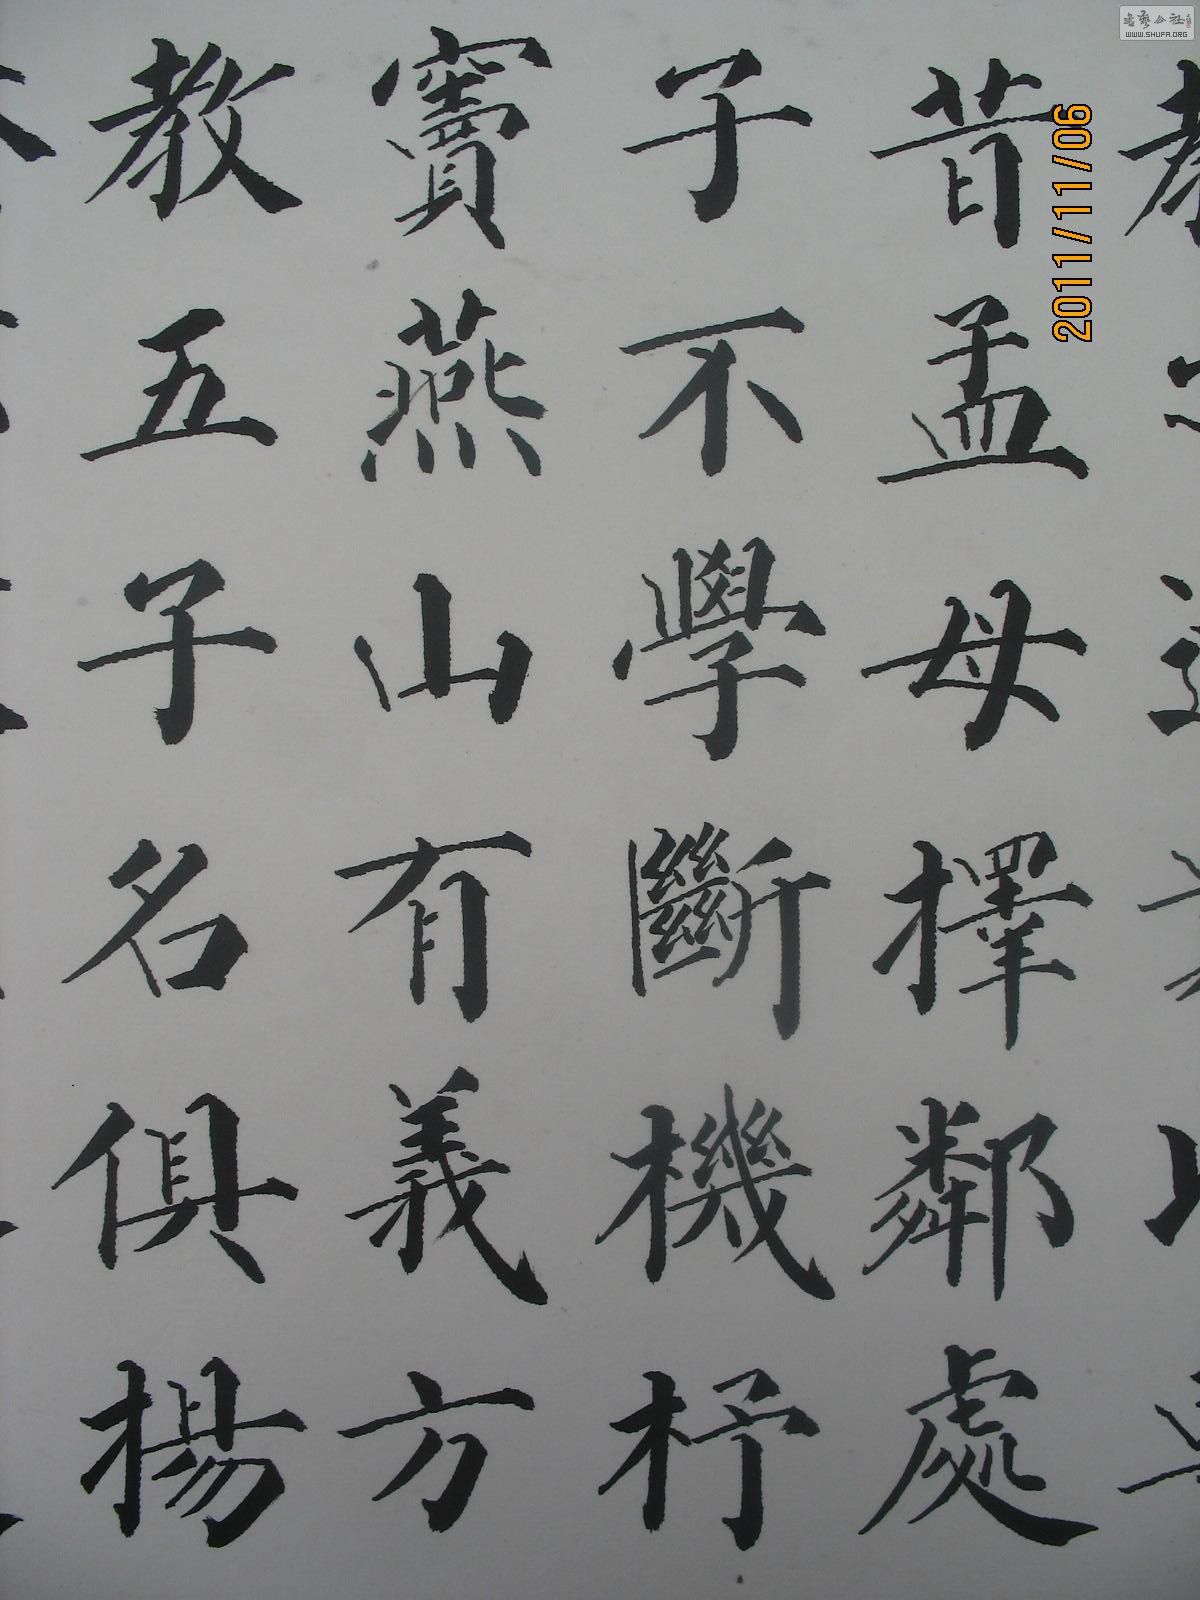 昔孟母擇鄰處
子不學斷機杼
竇燕山有義方
教五子名俱揚
2011/11/06
书艺公社
WWW.SHUFA.ORG